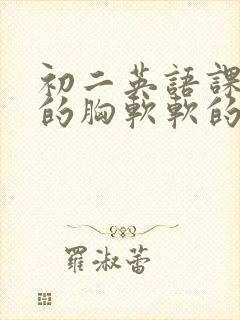 初二英語課
的胸軟軟的
羅淑蕾